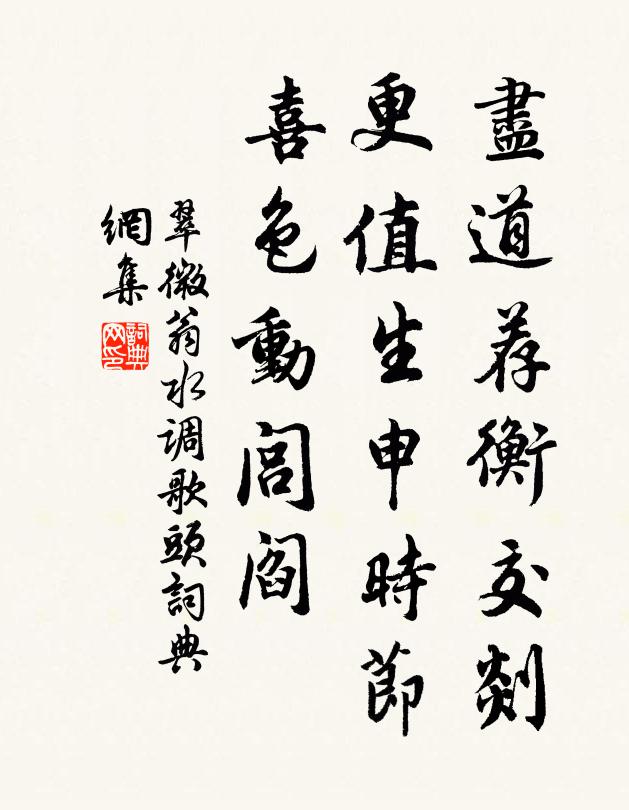 盡道荐衡交剡
更值生申時節
喜色動閭閻
翠微翁水调歌頭詞典
網集
詞典
网印